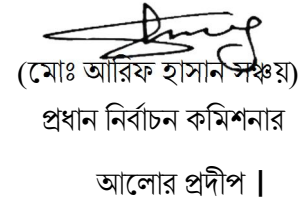 (মোঃ আরিফ হাসান সঞ্চয়)
প্রধান নির্বাচন কমিশনার
আলোর প্রদীপ |